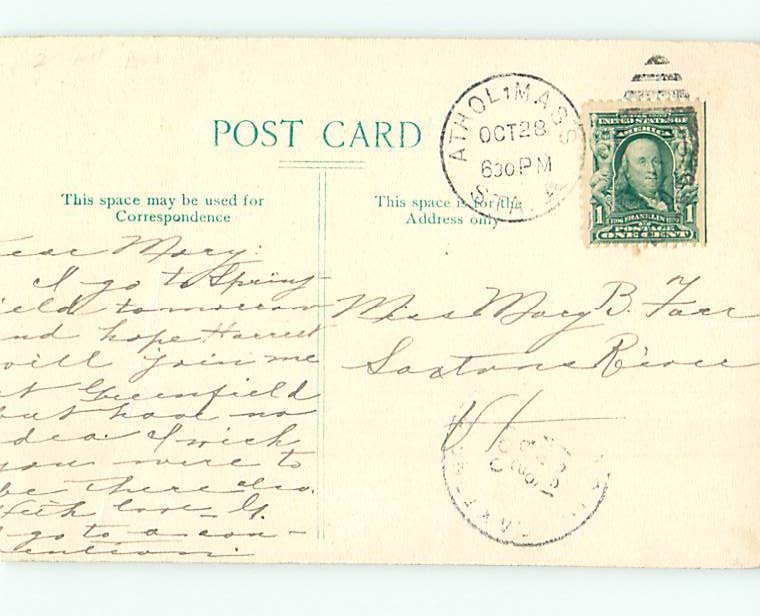 POST CARD
This space may be used for
Correspondence
This space is for the
Address only
ATHOL, MASS
OCT 28
630 PM
STA.
UNITED STATES OF
AMERICA
1 FRANKLIN 1
POSTAGE
ONE CENT
ear Mary:
I go to Spring-
ield tomorrow
nd hope Harriet
will join me
at Greenfield
but have no
idea. I wish
you were to
be there also.
With love G.
I go to a con-
vention.
Miss Mary B. Farr
Saxtons River
Vt